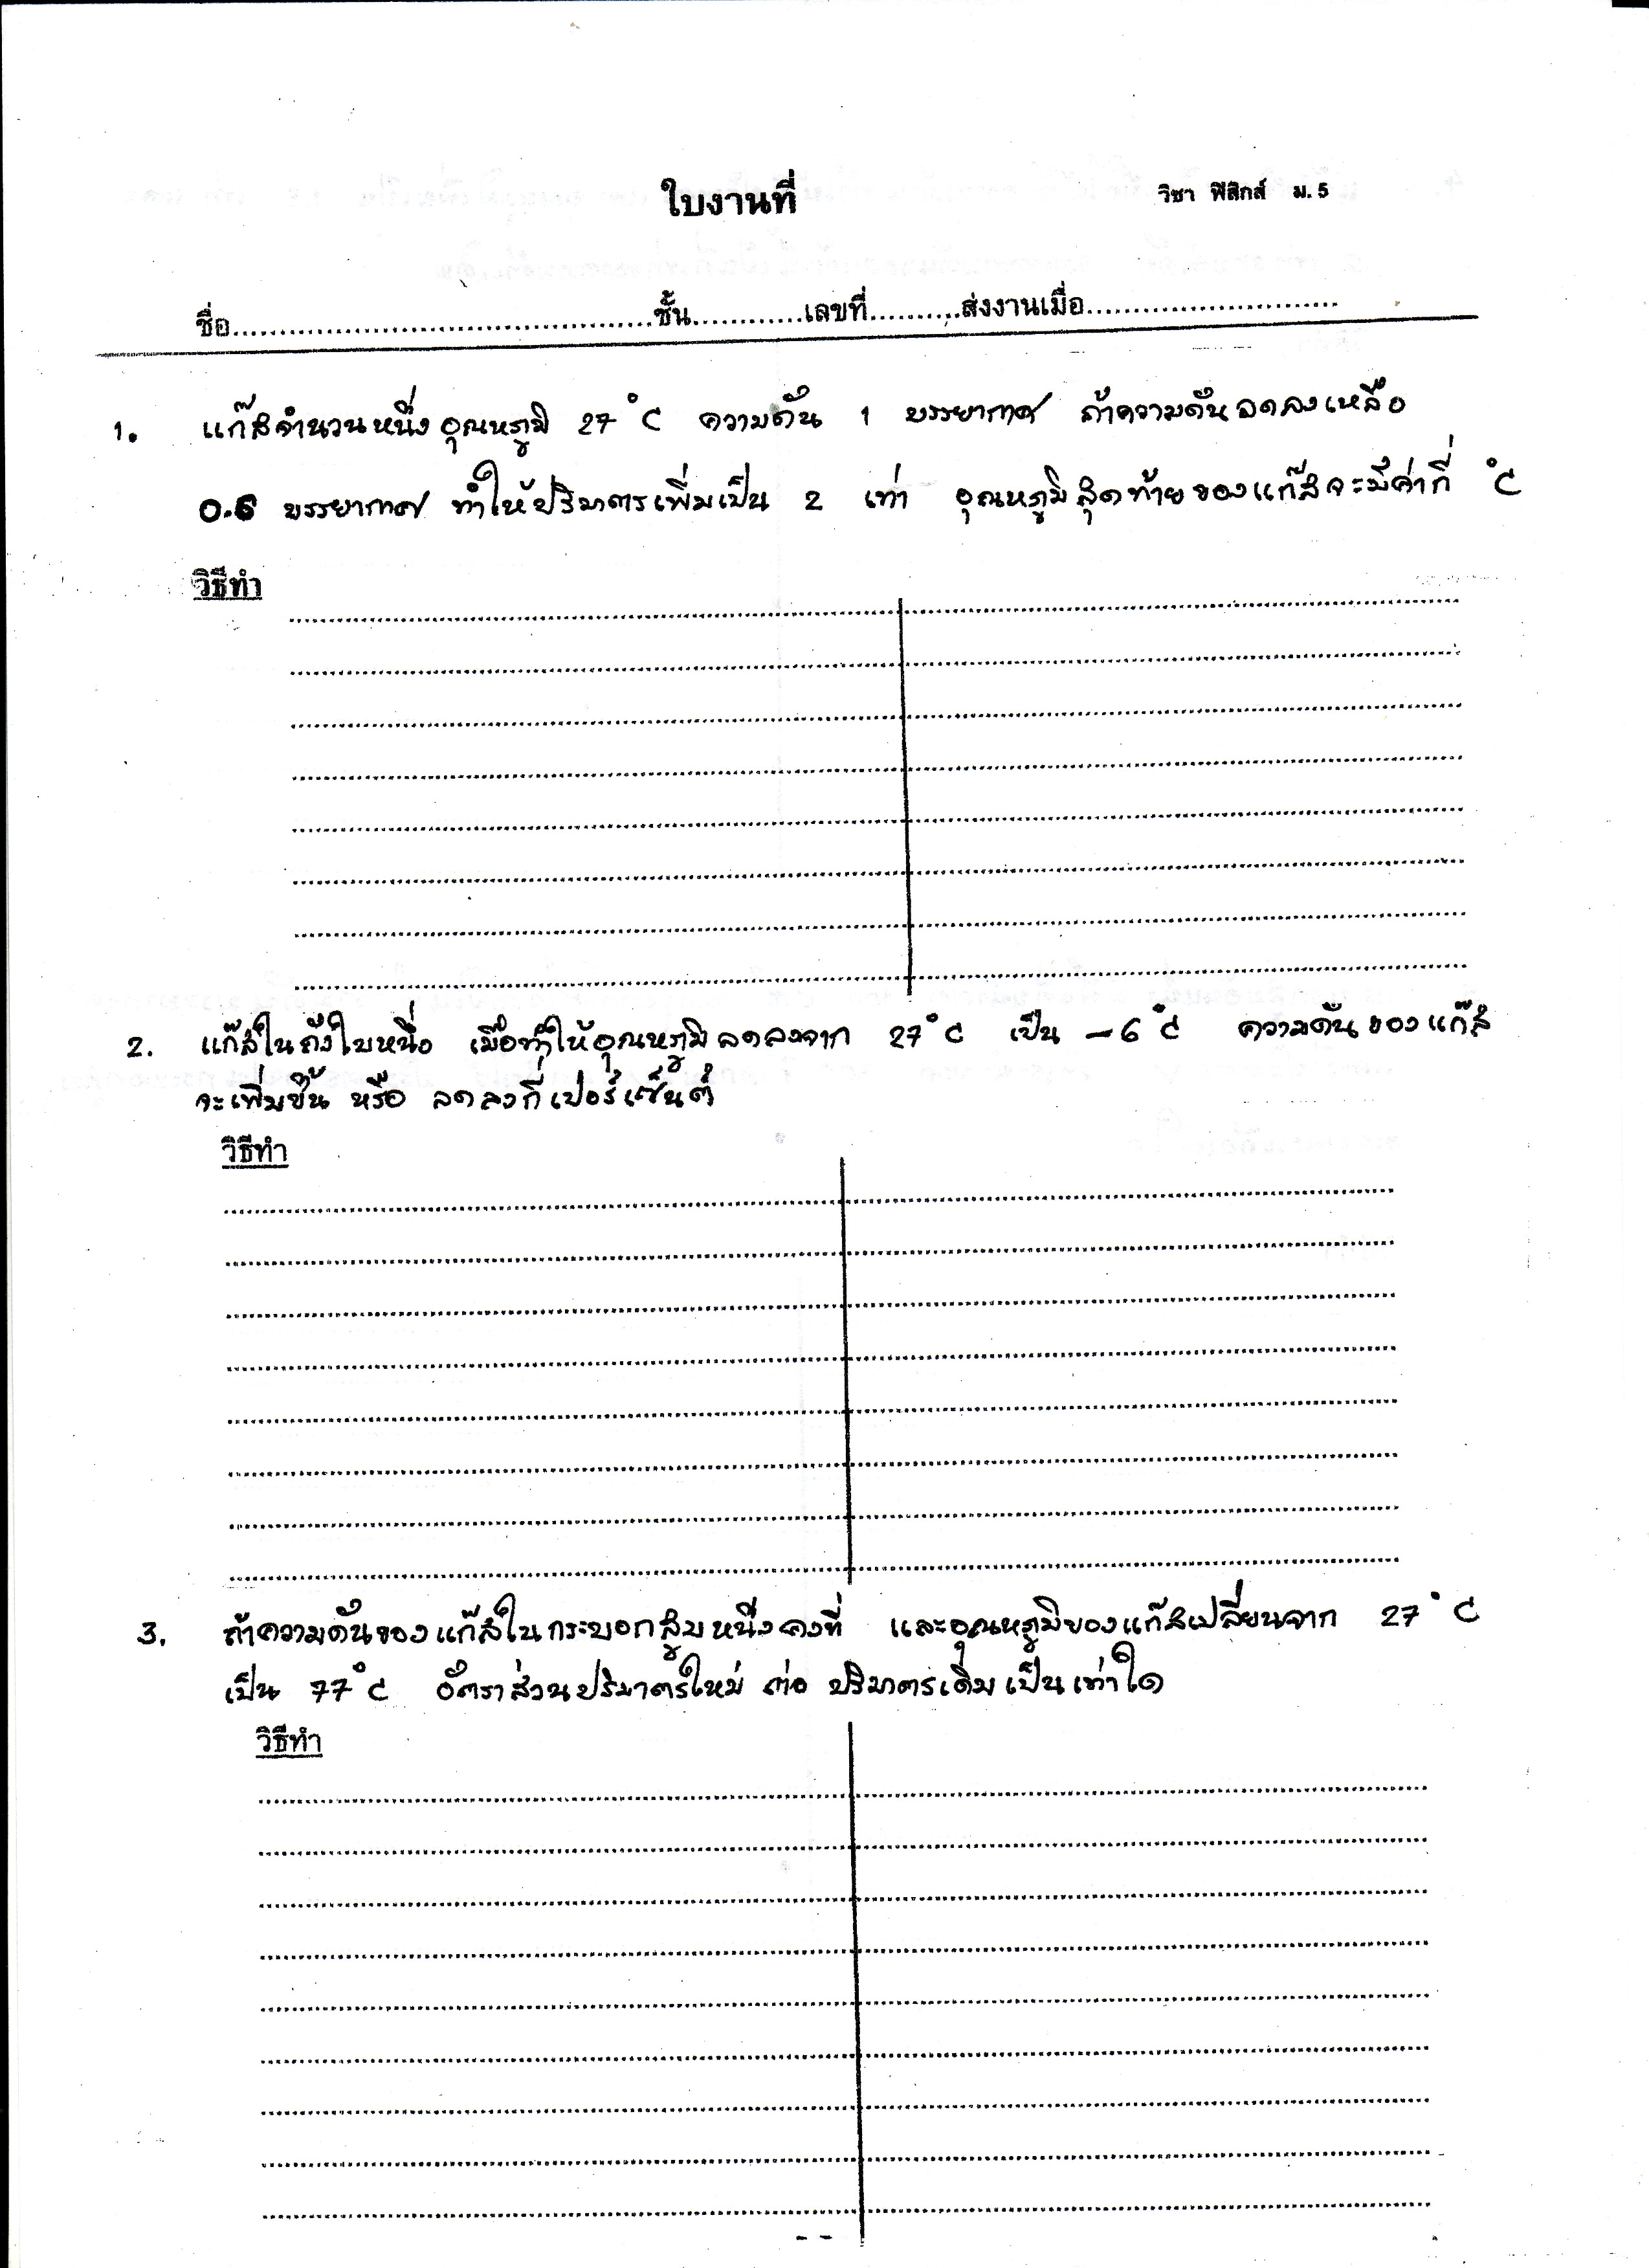 ใบงานที่
วิชา ฟิสิกส์ ม.5
ชื่อ..........................................ชั้น...........เลขที่.........ส่งงานเมื่อ.........................
1. แก๊สจำนวนหนึ่งอุณหภูมิ 27°C ความดัน 1 บรรยากาศ ถ้าความดันลดลงเหลือ
0.6 บรรยากาศ ทำให้ปริมาตรเพิ่มเป็น 2 เท่า อุณหภูมิสุดท้ายของแก๊สจะมีค่ากี่ °C
วิธีทำ
2. แก๊สในถังใบหนึ่ง เมื่อทำให้อุณหภูมิลดลงจาก 27°C เป็น -6°C ความดันของแก๊ส
จะเพิ่มขึ้น หรือ ลดลงกี่เปอร์เซ็นต์
วิธีทำ
3. ถ้าความดันของแก๊สในกระบอกสูบหนึ่งคงที่ และอุณหภูมิของแก๊สเปลี่ยนจาก 27°C
เป็น 77°C อัตราส่วนปริมาตรใหม่ ต่อ ปริมาตรเดิมเป็นเท่าใด
วิธีทำ